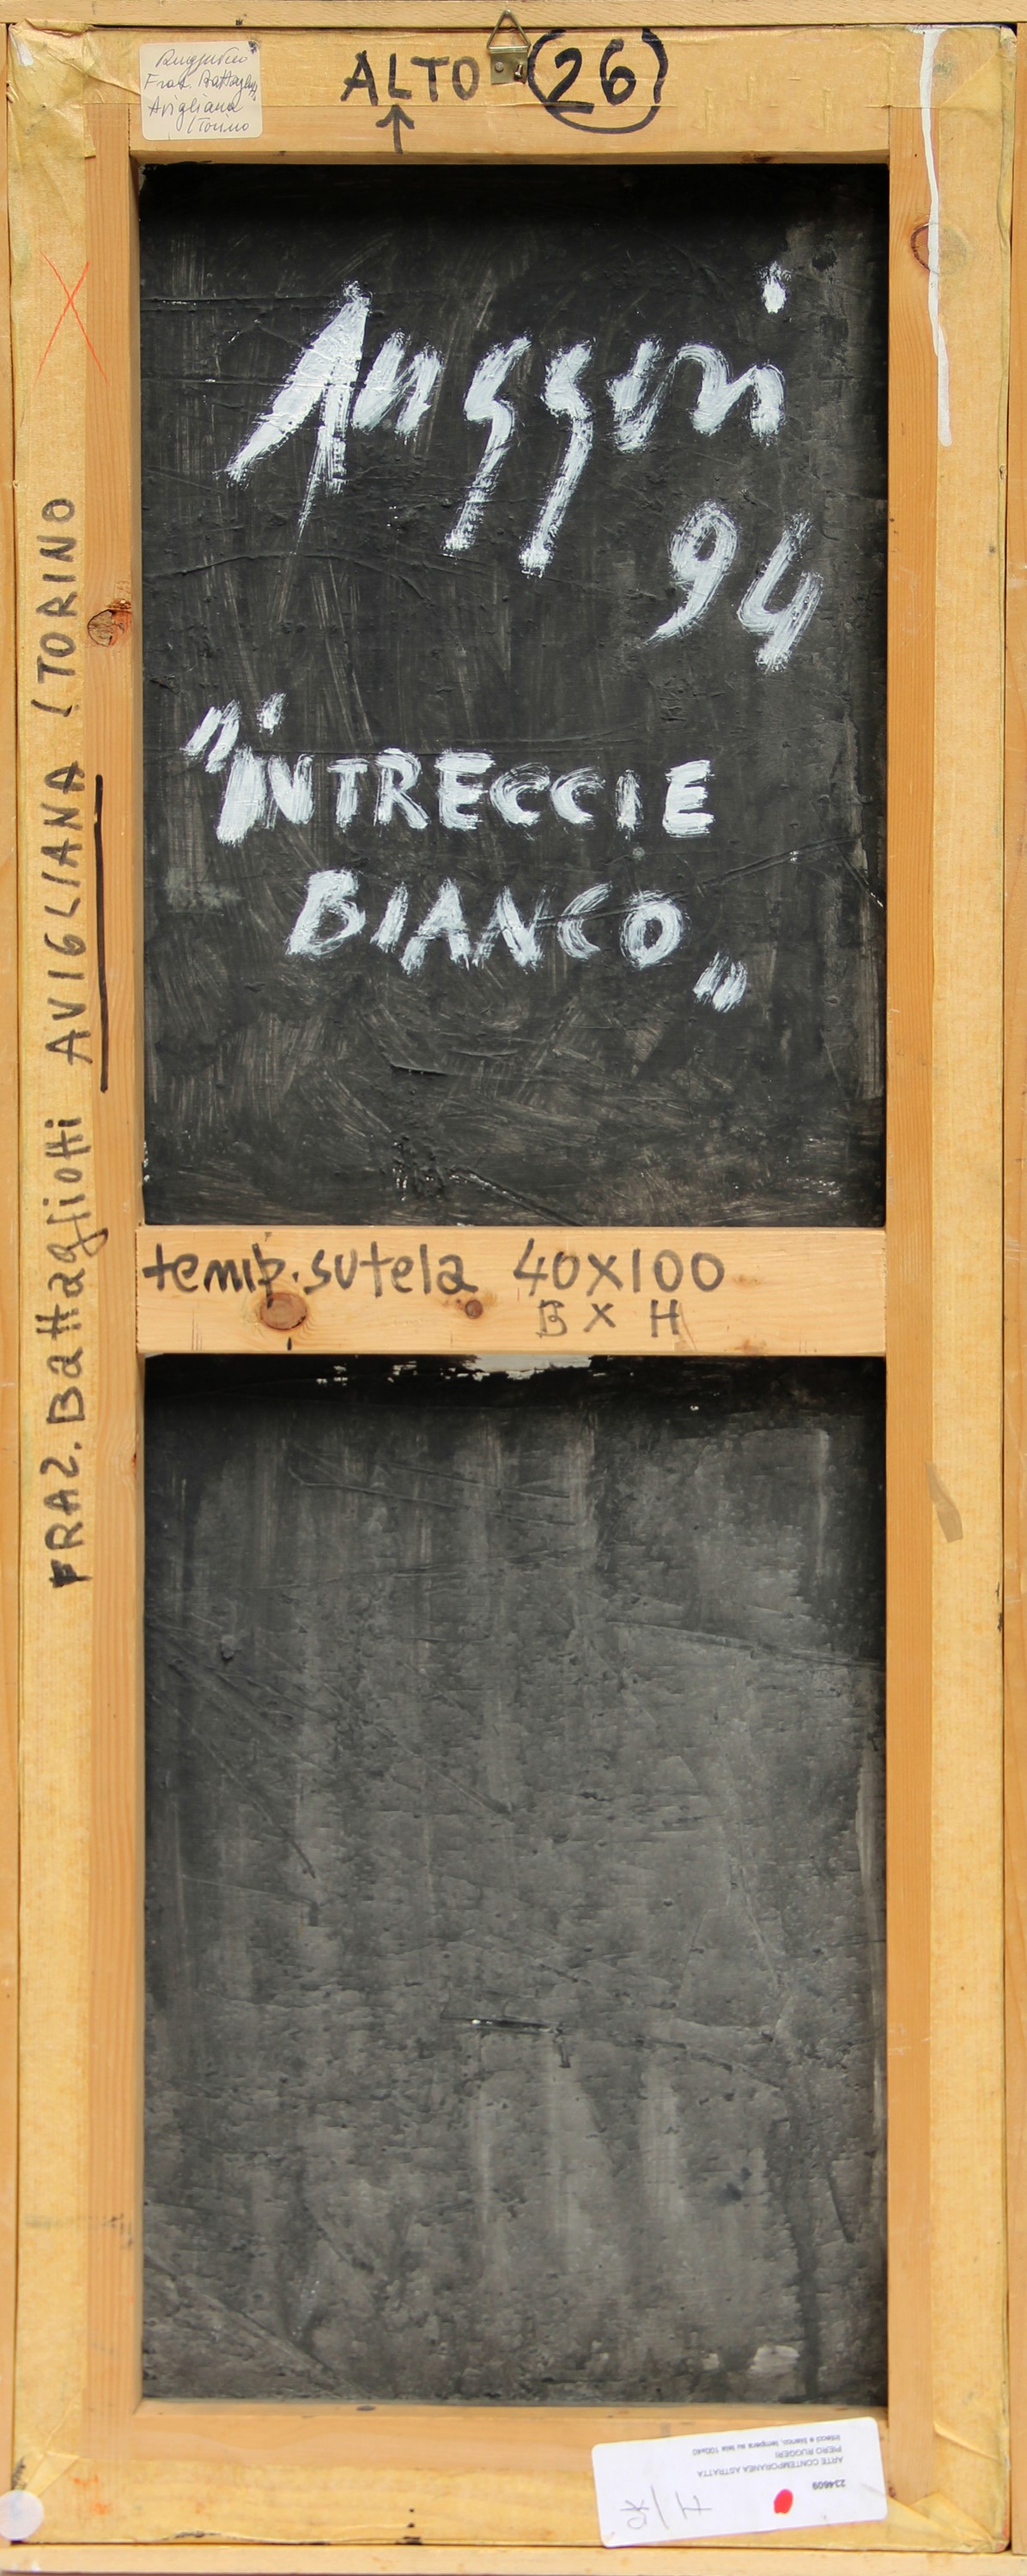 Ruggeri Piero
Fraz. Battagliotti
Avigliana
(Torino
ALTO 26
Ruggeri
94
"INTRECCI E
BIANCO"
FRAZ. Battagliotti AVIGLIANA (TORINO
temp. su tela 40X100
B X H
234609
ARTE CONTEMPORANEA ASTRATTA
PIERO RUGGERI
Intecci e bianco, tempera su tela 100x40